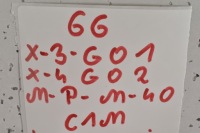 GG
X-3-GO1
X-4 GO2
M-P-M-40
C1M